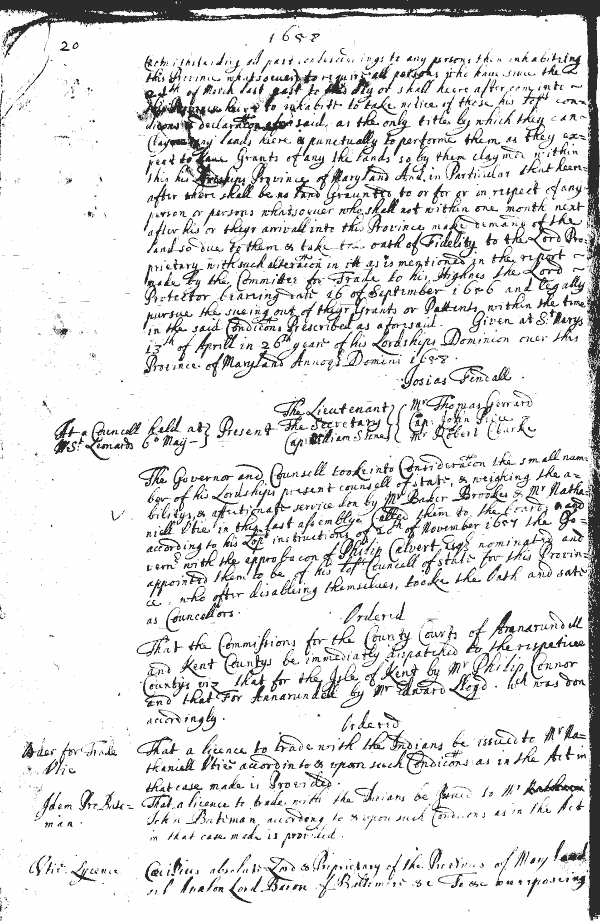 20
1658
notwithstanding all past condescendings to any persons then inhabiting
this Province whatsoever to require all persons who have since the
24th of March last past to this day or shall heere after come into
this Province heere to inhabitt to take notice of these his Lopps con=
dicons & Declaracon aforesaid, as the only titles by which they can
clayme any lands heere & punctually to performe them as they ex=
pect to have Grants of any the lands so by them claymed within
this his Lordships Province of Maryland And in Particular that heere
after there shall be no land Graunted to or for or in respect of any
person or persons whatsoever who shall not within one month next
after his or theyr arrivall into this Province make demand of the
land so due to them & take the oath of Fidelity to the Lord Pro=
prietary with such alteracon in it as is mentioned in the report
made by the Committee for Trade to his Highnes the Lord
Protector bearing date 16 of September 1656 and legally
pursue the sueing out of theyr Grants or Pattents within the time
in the said Condicons Prescribed as aforesaid. Given at St Marys
13th of Aprill in 26th yeare of his Lordships Dominion over this
Province of Maryland Annoq Domini 1658.
Josias Fendall
At a Councell held at
St Leonards 6o May
Present
The Lieutenant
The Secretary
Capt William Stone
Mr Thomas Gerrard
Capt John Price
Mr Robert Clarke
The Governor and Counsell tooke into Consideracon the small num=
ber of his Lordships present counsell of state, & weighing the a=
bilitys, & affectionate service don by Mr Baker Brookes & Mr Natha=
niell Vtie in this last assembly, Called them to the board, and
according to his Lopps instructions of 20th of November 1657 the Go=
vernr with the approbacon of Philip Calvert Esqr nominated and
appointed them to be of his Lopps Councell of state for this Provin=
ce. who after disabling themselves, tooke the Oath and sate
as Councellors.
Ordered
That the Commissions for the County Courts of Annarundell
and Kent Countys be immediately dispatched to the respective
Countys viz that for the Isle of Kent by Mr Philip Connor
and that For Annarundell by Mr Edward Lloyd. wch was don
accordingly.
Ordered
Order for Trade
Vtie
That a licence to trade with the Indians be issued to Mr Na=
thaniell Vtie according to & upon such Condicons as in the Act in
that case made is Provided.
Idem Pro Bate=
man.
That a licence to trade with the Indians be issued to Mr
John Bateman according to & upon such Condicons as in the Act
in that case made is provided.
Vtie Lycence
Cæcilius absolute Lord & Proprietary of the Provinces of Mary land
and Avalon Lord Baron of Baltimore &c To